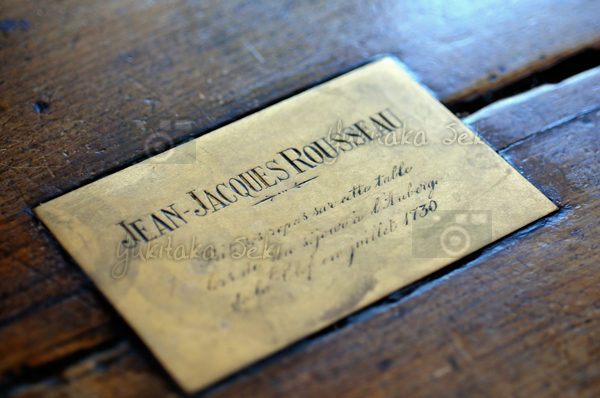 JEAN-JACQUES ROUSSEAU
repas sur cette table
lors de séjour à l'Auberge
de la Clef en juillet 1730
Yukitaka Seki
Yukitaka Seki